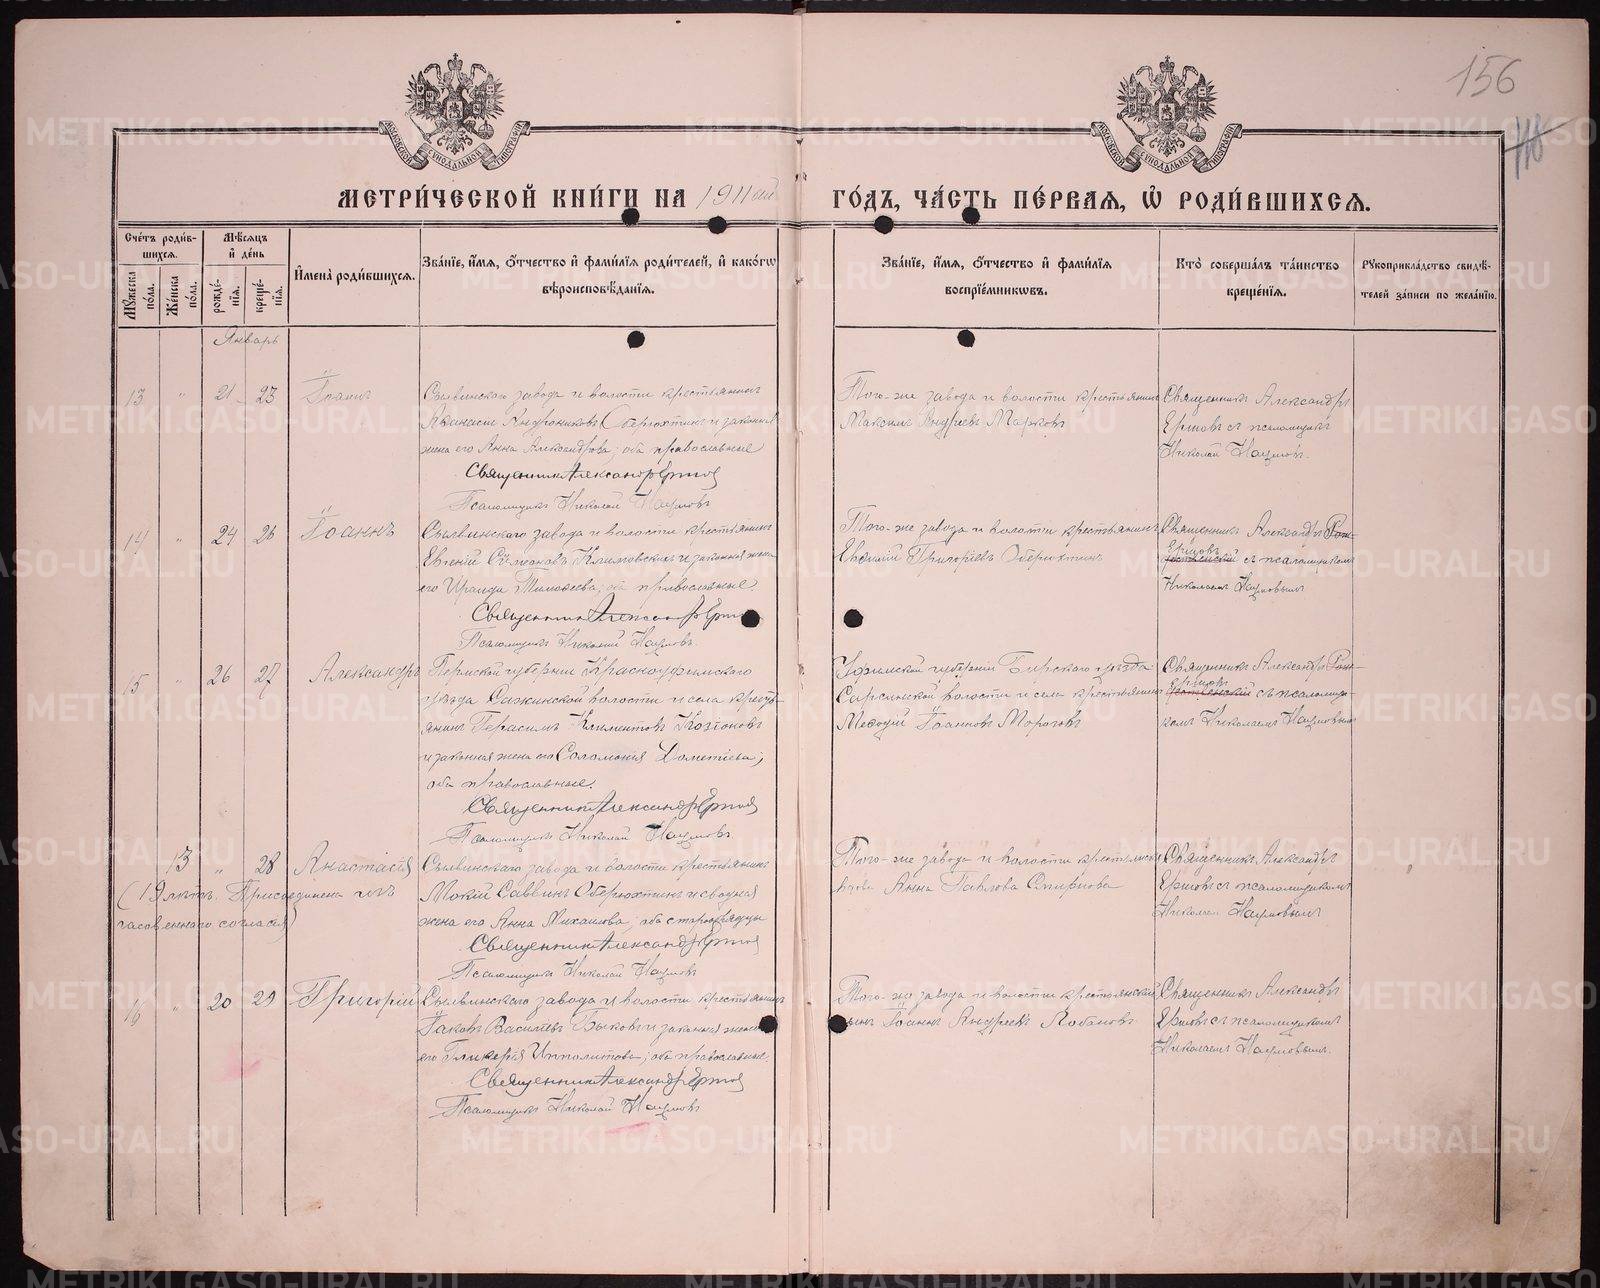 156
118
МОСКОВСКОЙ СѴНОДАЛЬНОЙ ТИПОГРАФІИ
МОСКОВСКОЙ СѴНОДАЛЬНОЙ ТИПОГРАФІИ
МЕТРИ́ЧЕСКОЙ КНИ́ГИ НА 1911 ый
ГО́ДЪ, ЧА́СТЬ ПЕ́РВАЯ, Ѡ РОДИ́ВШИХСЯ.
Сче́тъ роди́в-
шихся.
Мꙋ́жеска по́ла.
Же́нска по́ла.
Мѣ́сяцъ
и҆ де́нь
рожде́-
нїя.
креще́-
нїя.
И҆мена̀ роди́вшихся.
Зва́нїе, и҆́мя, ѻ҆́тчество и҆ фами́лїя роди́телей, и҆ како́гѡ
вѣроисповѣ́данїя.
Зва́нїе, и҆́мя, ѻ҆́тчество и҆ фами́лїя
воспрїе́мникѡвъ.
Кто̀ соверша́лъ та́инство
креще́нїя.
Рꙋкоприкла́дство свидѣ́-
телей за́писи по жела́нїю.
Январь
13 " 21 23 Іоаннъ
Сылвинскаго завода и волости крестьянинъ
Афанасій Андрониковъ Оберюхтинъ и законная
жена его Анна Александрова; оба православные
Священникъ Александръ Ершовъ
Псаломщикъ Николай Наумовъ
Того-же завода и волости крестьянинъ
Максимъ Андреевъ Марковъ
Священникъ Александръ
Ершовъ съ псаломщикомъ
Николай Наумовъ.
14 " 24 26 Іоаннъ
Сылвинскаго завода и волости крестьянинъ
Евгеній Сѵмеоновъ Климовскихъ и законная жена
его Ираида Тимофеева; оба православные.
Священникъ Александръ Ершовъ
Псаломщикъ Николай Наумовъ.
Того-же завода и волости крестьянинъ
Евфимій Григоріевъ Оберюхтинъ
Священникъ Александръ
Ершовъ
съ псаломщикомъ
Николаемъ Наумовымъ
15 " 26 27 Александръ
Пермской губерніи Красноуфимскаго
уѣзда Сажинской волости и села кресть-
янинъ Герасимъ Климентовъ
и законная жена его Соломонія Дометіева;
оба православные.
Священникъ Александръ Ершовъ
Псаломщикъ Николай Наумовъ
Уфимской губерніи Бирскаго уѣзда
Сарсинской волости и села крестьянинъ
Меѳодій Іоанновъ Морозовъ
Священникъ Александръ
Ершовъ
съ псаломщи-
комъ Николаемъ Наумовымъ
13 " 28 Анастасія
(19 лѣтъ. Присоединена изъ
часовеннаго согласія)
Сылвинскаго завода и волости крестьянинъ
Мокій Саввинъ Оберюхтинъ и сводная
жена его Анна Михаилова; оба старообрядцы
Священникъ Александръ Ершовъ
Псаломщикъ Николай Наумовъ
Того-же завода и волости крестьянская
Анна Павлова Смирнова
Священникъ Александръ
Ершовъ съ псаломщикомъ
Николаемъ Наумовымъ
16 " 20 29 Григорій
Сылвинскаго завода и волости крестьянинъ
Іаковъ Василіевъ Быковъ и законная жена
его Гликерія Ипполитова; оба православные.
Священникъ Александръ Ершовъ
Псаломщикъ Николай Наумовъ
Того-же завода и волости крестьянскій
сынъ Іоаннъ Андреевъ Лобановъ
Священникъ Александръ
Ершовъ съ псаломщикомъ
Николаемъ Наумовымъ.
METRIKI.GASO-URAL.RU